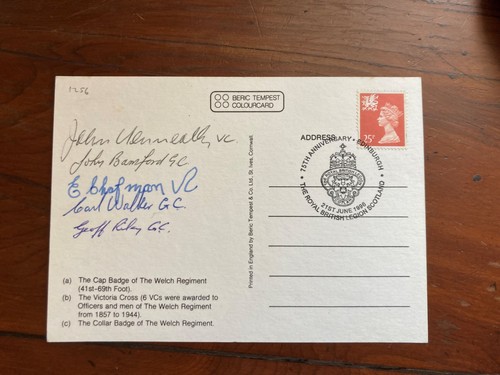 1256
BERIC TEMPEST
COLOURCARD
John Kenneally VC
John Bamford GC
E Chapman VC
Carl Walker G.C.
Geoff Riley G.C.
(a) The Cap Badge of The Welch Regiment
(41st-69th Foot).
(b) The Victoria Cross (6 VCs were awarded to
Officers and men of The Welch Regiment
from 1857 to 1944).
(c) The Collar Badge of The Welch Regiment.
Printed in England by Beric Tempest & Co. Ltd., St. Ives, Cornwall.
ADDRESS
25P
• 75TH ANNIVERSARY • EDINBURGH •
ROYAL BRITISH LEGION
21ST JUNE 1996
THE ROYAL BRITISH LEGION SCOTLAND